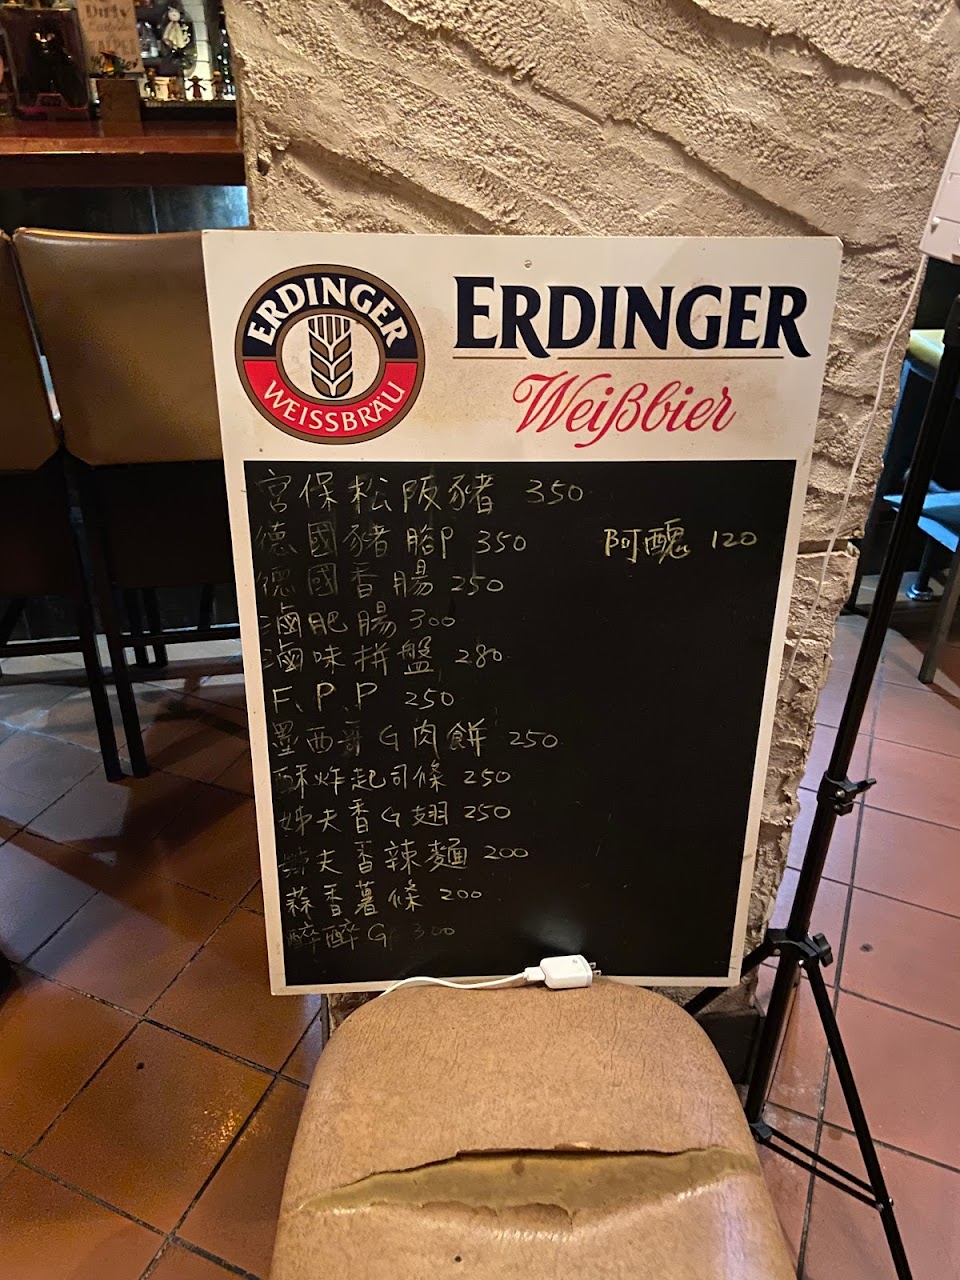 ERDINGER
WEISSBRÄU
ERDINGER
Weißbier
宮保松阪豬 350
德國豬腳P 350
阿醜 120
德國香腸 250
滷肥腸 300
滷味拼盤 280
F、P、P 250
墨西哥G肉餅 250
酥炸起司條 250
姊夫香G翅 250
姊夫香辣麵 200
蒜香薯條 200
醉醉G 300